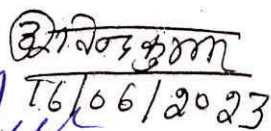 अरविन्द कुमार
16/06/2023